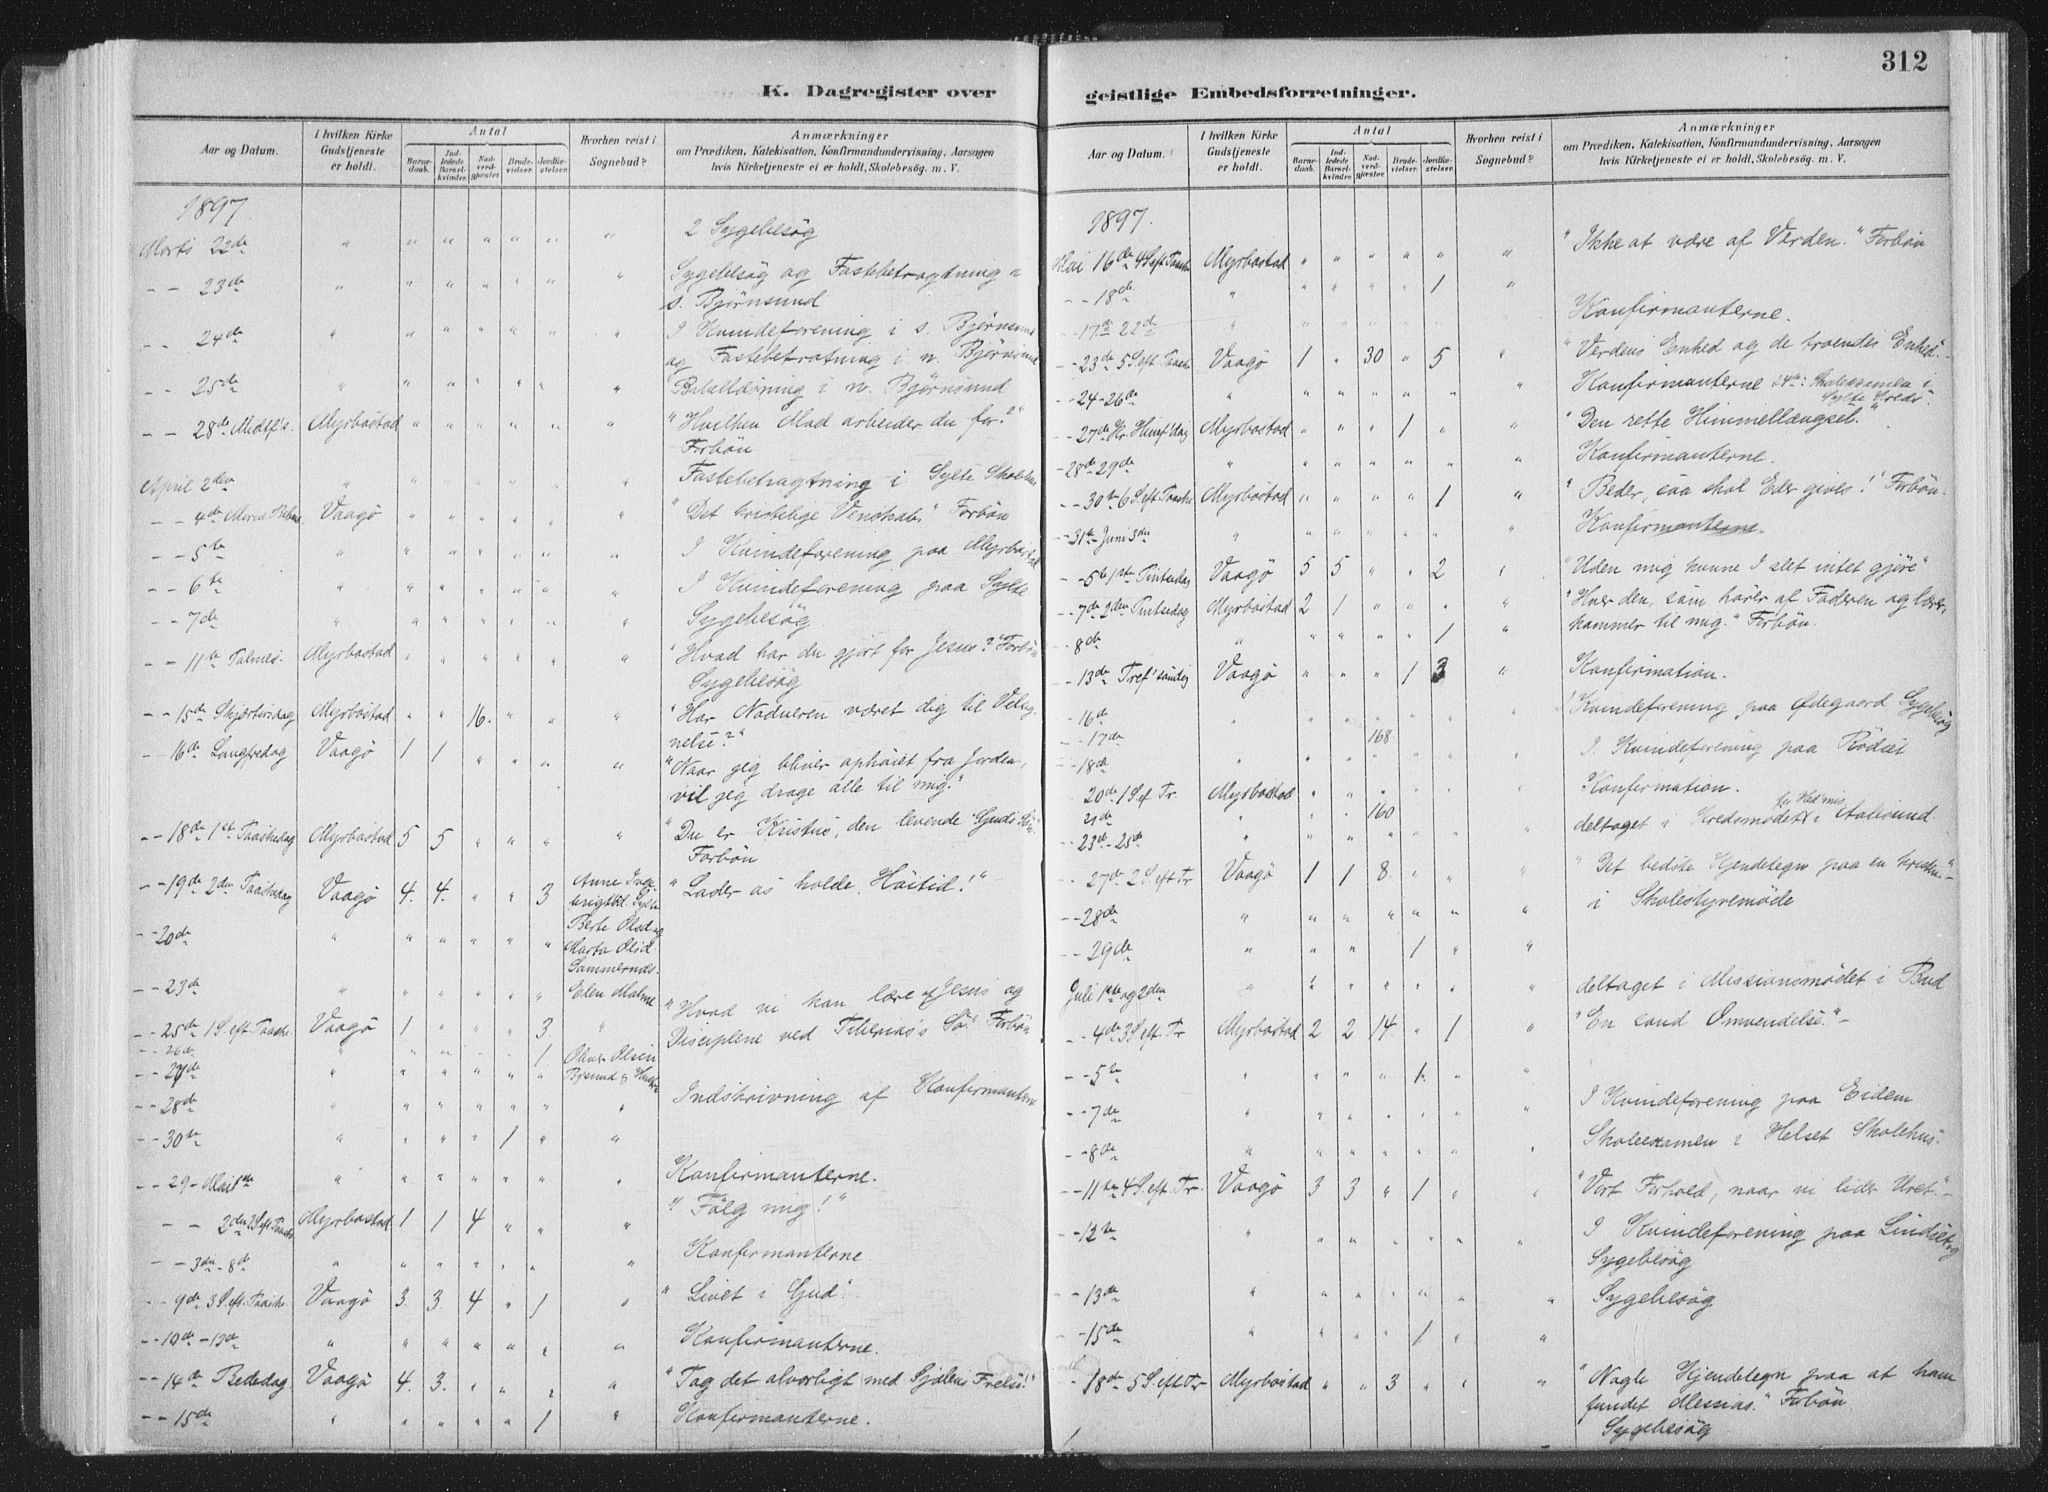 K. Dagregister over
Aar og Datum.
I hvilken Kirke Gudstjeneste er holdt.
Antal
Barnedaab.
Indledede Barselkvinder.
Nadverdgjæster.
Brudevielser.
Jordfæstelser.
Hvorhen reist i Sognebud?
Anmærkninger
om Prædiken, Katekisation, Konfirmandundervisning, Aarsagen
hvis Kirketjeneste ei er holdt, Skolebesøg. m. V.
1897
Marts 22de " " " " " " " 2 Sygebesög
-- 23de " " " " " " " Sygebesög og Fastebetragtning i
s. Björnsund
-- 24de " " " " " " " I Kvindeforening i s. Björnsund
og Fastebetratning i n. Björnsund
-- 25de " " " " " " " Bibellæsning i n. Björnsund
-- 28de Midf's. Myrbostad " " " " " " "Hvilken Mad arbeider du for?"
Forbön
April 2den " " " " " " " Fastebetragtning i Sylte Skolehus
-- 4de Vaagö " " " " " " "Det kristelige Venskab." Forbön
-- 5te " " " " " " " I Kvindeforening paa Myrbostad
-- 6te " " " " " " " I Kvindeforening paa Sylte
-- 7de " " " " " " " Sygebesög
-- 11te Palmes. Myrbostad " " " " " " "Hvad har du gjort for Jesus?" Forbön
Sygebesög
-- 15de Skjærtorsdag Myrbostad " " 16. " " " "Har Nadveren været dig til Velsig-
nelse?"
-- 16de Langfredag Vaagö 1 1 " " " " "Naar jeg bliver ophöiet fra Jorden,
vil jeg drage alle til mig."
-- 18de 1st Paaskedag Myrbostad 5 5 " " " " "Du er Kristus, den levende Guds Sön"
Forbön
-- 19de 2den Paaskedag Vaagö 4. 4. " " 3 Anne Inge-
brigtsd. Sylte "Lader os holde Höitid!"
-- 20de " " " " " " Berte Olsd og
Marta Olsd.
-- 23de " " " " " " Elen Malme
"Hvad vi kan lære af Jesus og
-- 25de 1 S. eft. Paaske Vaagö 1 " " " 3. " Disciplene ved Tiberias's Sö." Forbön
-- 26de " " " " " 1
-- 27de " " " " " " Oliver Olsen
-- 28de " " " " " " " Indskrivning af Konfirmanterne
-- 30te " " " " 1 " "
-- 29 - Mai 1ste " " " " " " " Konfirmanterne.
-- 2den 2 S. eft Paaske Myrbostad 1 1 4 " " " "Fölg mig!"
-- 3die - 8de " " " " " " " Konfirmanterne.
-- 9de 3 S. eft. Paaske Vaagö 3. 3. 4 " 1 " "Livet i Gud".
-- 10de - 13de " " " " " " " Konfirmanterne.
-- 14de Bededag. Vaagö 4. 3. " " " " "Tag det alvorligt med Sjælens Frelse!"
-- 15de " " " " " 1 " Konfirmanterne.
geistlige Embedsforretninger.
312
Aar og Datum.
I hvilken Kirke Gudstjeneste er holdt.
Antal
Barnedaab.
Indledede Barselkvinder.
Nadverdgjæster.
Brudevielser.
Jordfæstelser.
Hvorhen reist i Sognebud?
Anmærkninger
om Prædiken, Katekisation, Konfirmandundervisning, Aarsagen
hvis Kirketjeneste ei er holdt, Skolebesøg. m. V.
1897.
Mai 16de 4 S eft. Paaske Myrbostad " " " " " " "Ikke at være af Verden." Forbön
-- 18de " " " " " 1 "
-- 17de 22de " Konfirmanterne.
-- 23de 5 S eft Paaske Vaagö 1 " 30 " 5 " "Verdens Enhed og de troendes Enhed."
-- 24-26de " " " " " " " Konfirmanterne 24de: Skoleexamen i
Sylte Kreds.
-- 27de Kr. Himf'dag Myrbostad " " " 1 " " "Den rette Himmellængsel."
28de 29de " " " " " " " Konfirmanterne.
-- 30te 6 S eft Paaske Myrbostad " " " " 1 " "Beder, saa skal Eder gives!" Forbön.
-- 31te - Juni 3die " " " " " " " Konfirmanterne.
-- 1ste Pintsedag Vaagö 5 5 " " 2 " "Uden mig kunne I slet intet gjöre"
-- 7de 2den Pintsedag Myrbostad 2 1 " " " " "Hver den, som hörer af Faderen og lærer,
kommer til mig." Forbön.
-- 8de " " " " " 1 "
-- 13de Tref'söndag Vaagö " " " 1 3 " Konfirmation.
-- 16de " " " " " " " I Kvindeforening paa Ødegaard Sygebesög
-- 17de 168
-- 18de " " " " " " " I Kvindeforening paa Rödset
20de 1 S ef. Tr. Myrbostad " " " " " " Konfirmation.
21de " 160
-- 23de-25de " " " " " " deltaget i Kredsmödet for Hed'mis. i Aalesund.
-- 27de 2 S. eft Tr Vaagö 1 1 8 " " " "Det bedste Kjendetegn paa en kristen"
-- 28de " " " " " " " i Skolestyremöde
-- 29de " " " " 1 " "
Juli 1ste og 2den " " " " " " " deltaget i Missionsmödet i Bud
-- 4de 3 S eft. Tr Myrbostad 2 2 14. " 1 " "En sand Omvendelse."
-- 5te " " " " 1 " "
-- 7de " " " " " " " I Kvindeforening paa Eidem
-- 8de " " " " " " " Skoleexamen i Helset Skolehus.
-- 11te 4 S. eft. Tr. Vaagö 3 3 " 1 " " "Vort Forhold, naar vi lider Uret."
-- 12te " " " " " " " I Kvindeforening paa Lindset og
Sygebesög
-- 13de " " " " " " " Sygebesög
-- 15de " " " " 1 " "
-- 18de 5 S. eft Tr Myrbostad " " 3 " " " "Nogle Kjendetegn paa at have
fundet Messias." Forbön.
Sygebesög